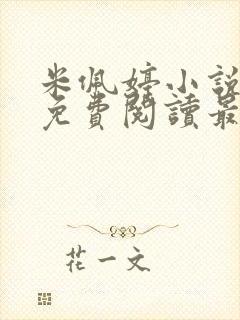 米佩婷小說
免費閱讀最
花一文